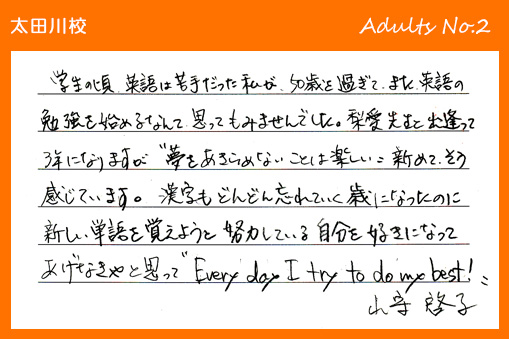 太田川校
Adults No.2
学生の頃、英語は苦手だった私が、50歳を過ぎて、また、英語の
勉強を始めるなんて思ってもみませんでした。梨愛先生と出逢って
3年になりますが〝夢をあきらめないことは楽しい〟初めて、そう
感じています。漢字もどんどん忘れていく歳になったのに
新しい単語を覚えようと努力している自分を好きになって
あげなきゃと思って〝Every day I try to do my best!〟
山守 啓子